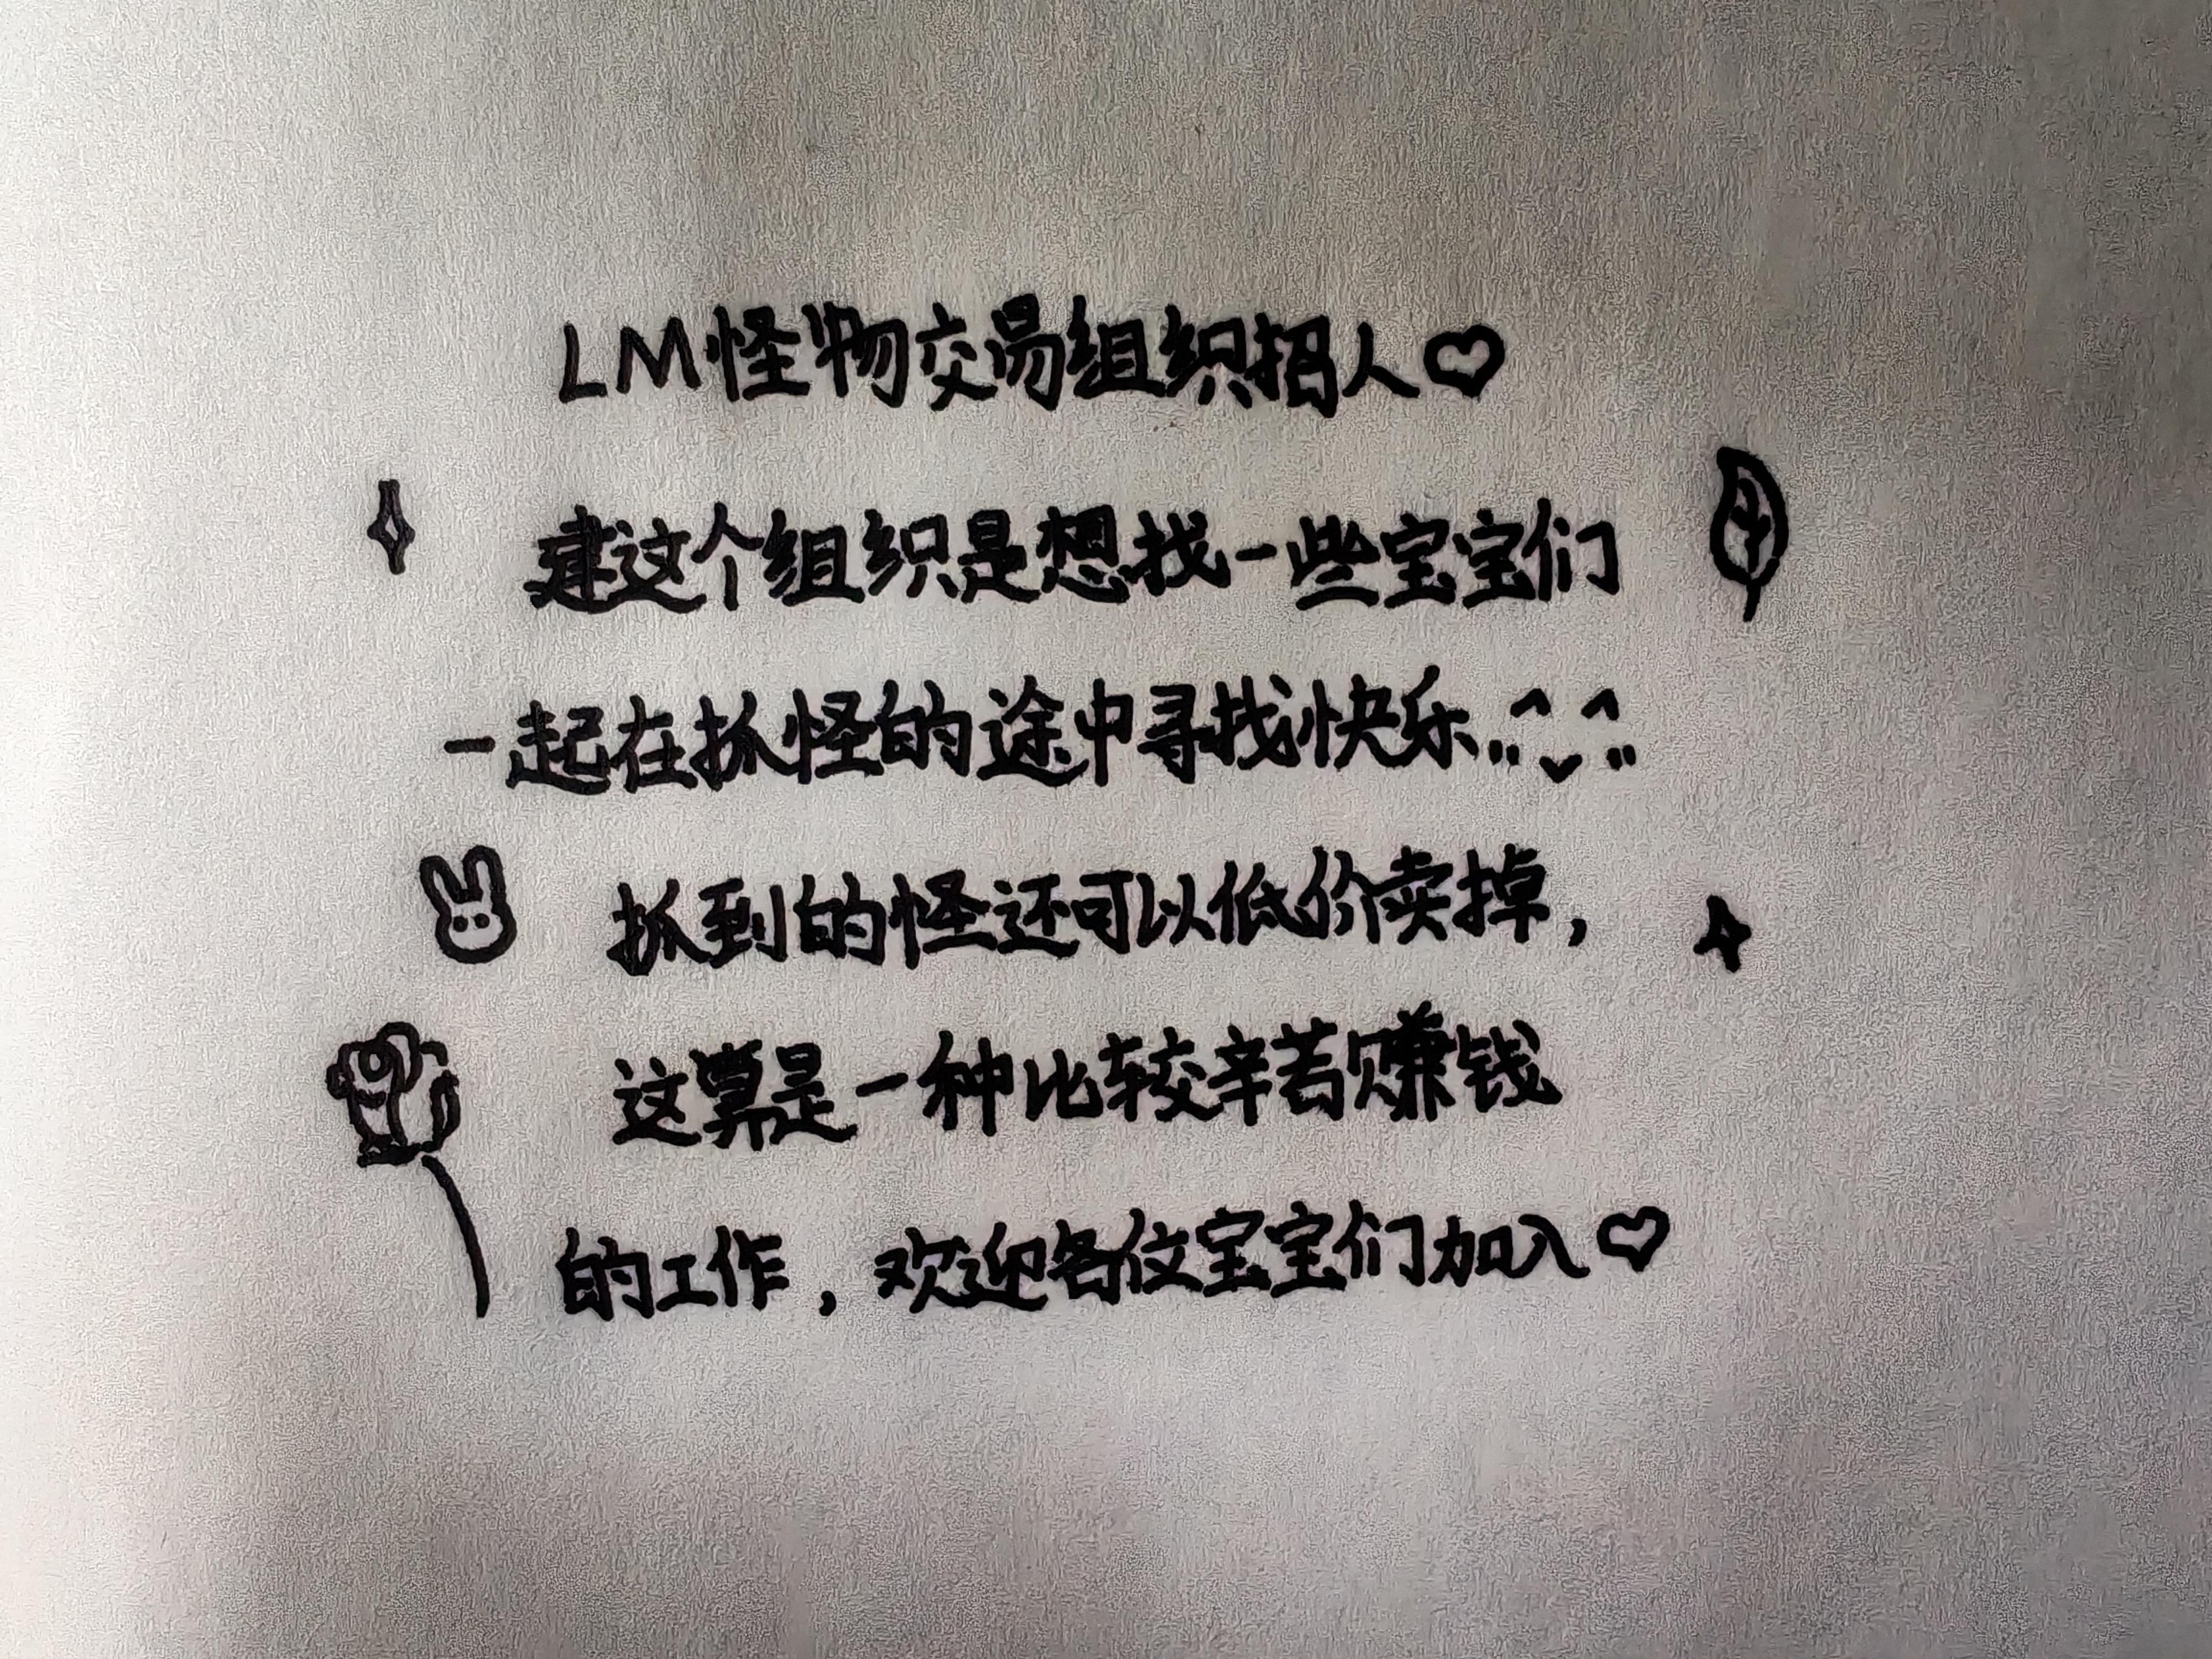 LM怪物交易组织招人♡
建这个组织是想找一些宝宝们
一起在抓怪的途中寻找快乐..^ˇ^..
抓到的怪还可以低价卖掉，
这算是一种比较辛苦赚钱
的工作，欢迎各位宝宝们加入♡